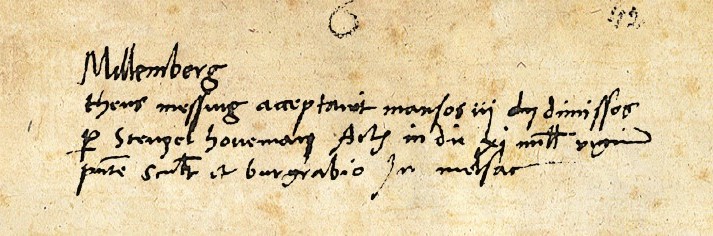 6 42
Millemberg
theus messing acceptavit mansos iij dimissos
p Stenzel hoveman Act in die xi mill virginu
pnte scult et burgrabio In melsac